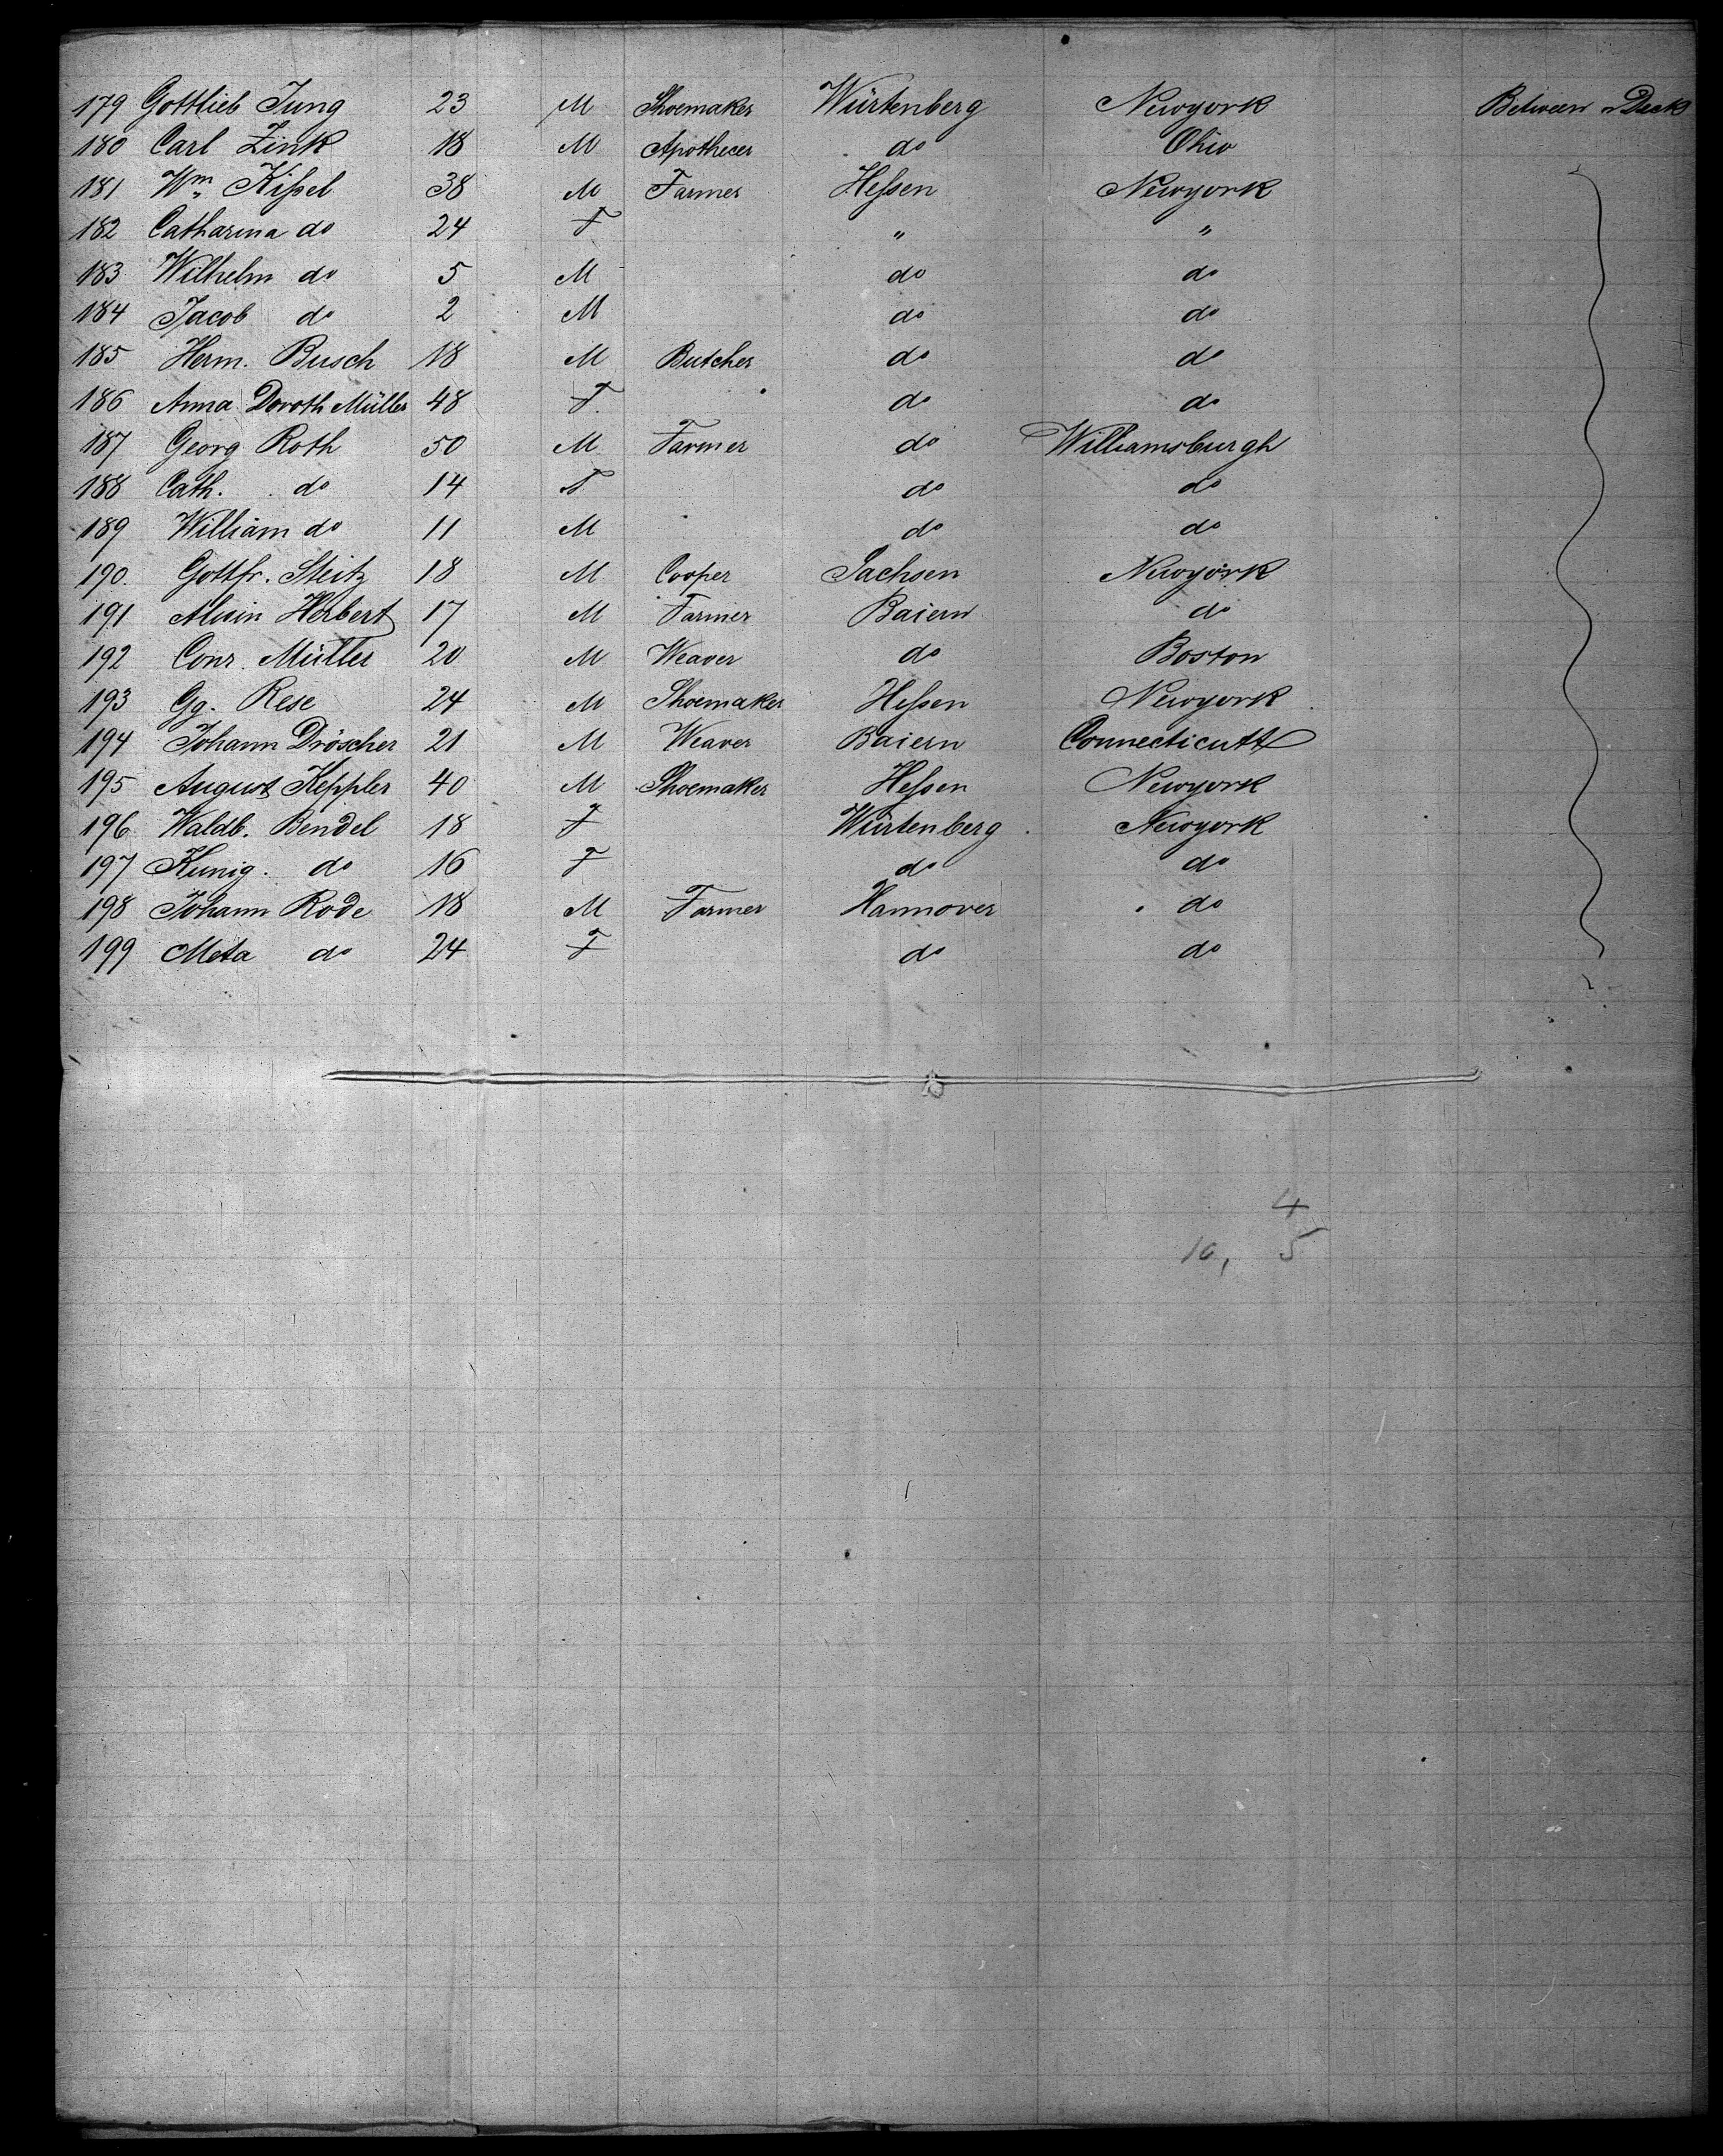 179 Gottlieb Jung 23 M Shoemaker Würtenberg Newyork Between Deck
180 Carl Zink 18 M Apothecer do Ohio
181 Wm Kißel 38 M Farmer Heßen Newyork
182 Catharina do 24 F " "
183 Wilhelm do 5 M do do
184 Jacob do 2 M do do
185 Herm. Busch 18 M Butcher do do
186 Anna Doroth Müller 48 F. do do
187 Georg Roth 50 M Farmer do Williamsburgh
188 Cath. do 14 F do do
189 William do 11 M do do
190. Gottfr. Steitz 18 M Cooper Sachsen Newyork
191 Alwin Herbert 17 M Farmer Baiern do
192 Conr. Müller 20 M Weaver do Boston
193 Gg. Rese 24 M Shoemaker Heßen Newyork
194 Johann Dröscher 21 M Weaver Baiern Connecticutt
195 August Keppler 40 M Shoemaker Heßen Newyork
196 Waldb. Bendel 18 F Würtenberg Newyork
197 Kunig. do 16 F do do
198 Johann Rode 18 M Farmer Hannover do
199 Meta do 24 F do do
4
10, 5